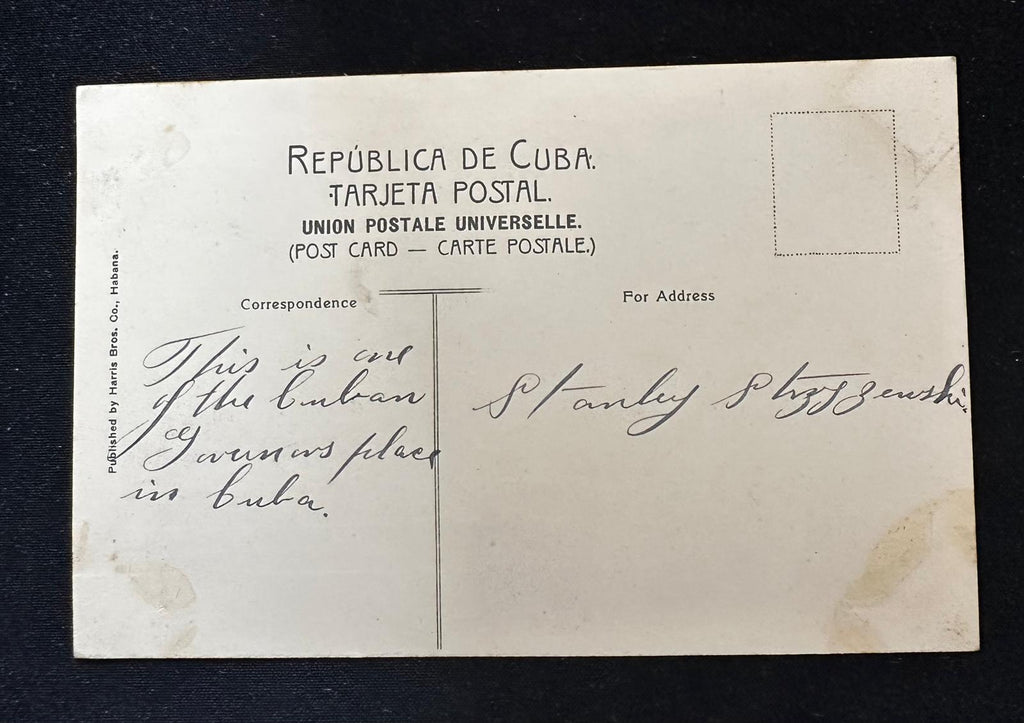 REPÚBLICA DE CUBA.
TARJETA POSTAL.
UNION POSTALE UNIVERSELLE.
(POST CARD — CARTE POSTALE.)
Published by Harris Bros. Co., Habana.
Correspondence
This is one
of the Cuban
Governors place
in Cuba.
For Address
Stanley